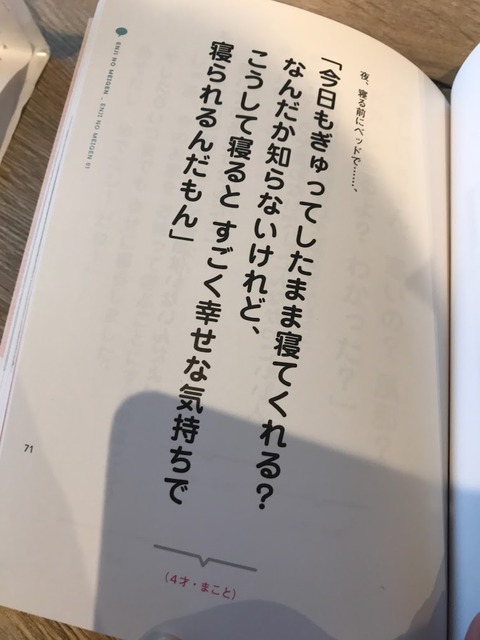 夜、寝る前にベッドで……、
「今日もぎゅってしたまま寝てくれる？
なんだか知らないけれど、
こうして寝ると すごく幸せな気持ちで
寝られるんだもん」
（4才・まこと）
ENJI NO MEIGEN - ENJI NO MEIGEN 61
71